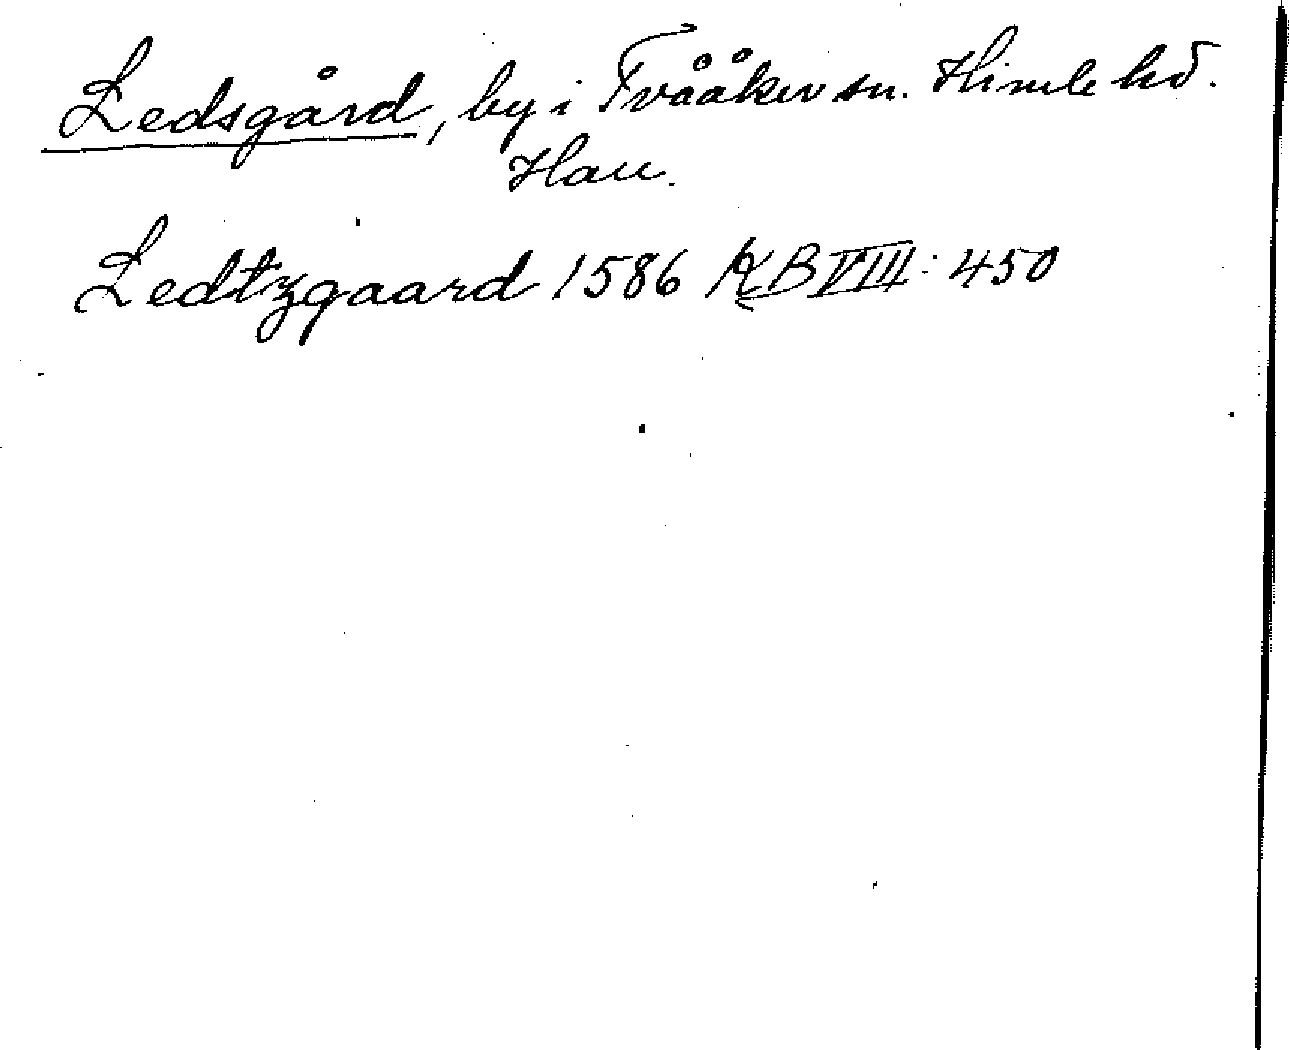 Ledsgård, by i Tvååker sn. Himle hd.
Hall.
Ledtzgaard 1586 KB VIII: 450